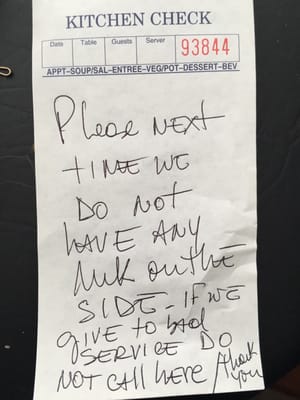 KITCHEN CHECK
Date Table Guests Server 93844
APPT-SOUP/SAL-ENTREE-VEG/POT-DESSERT-BEV
Please NEXT
TIME WE
DO NOT
HAVE ANY
Milk on THE
SIDE - IF WE
give to bad
SERVICE DO
NOT CALL here / thank
you